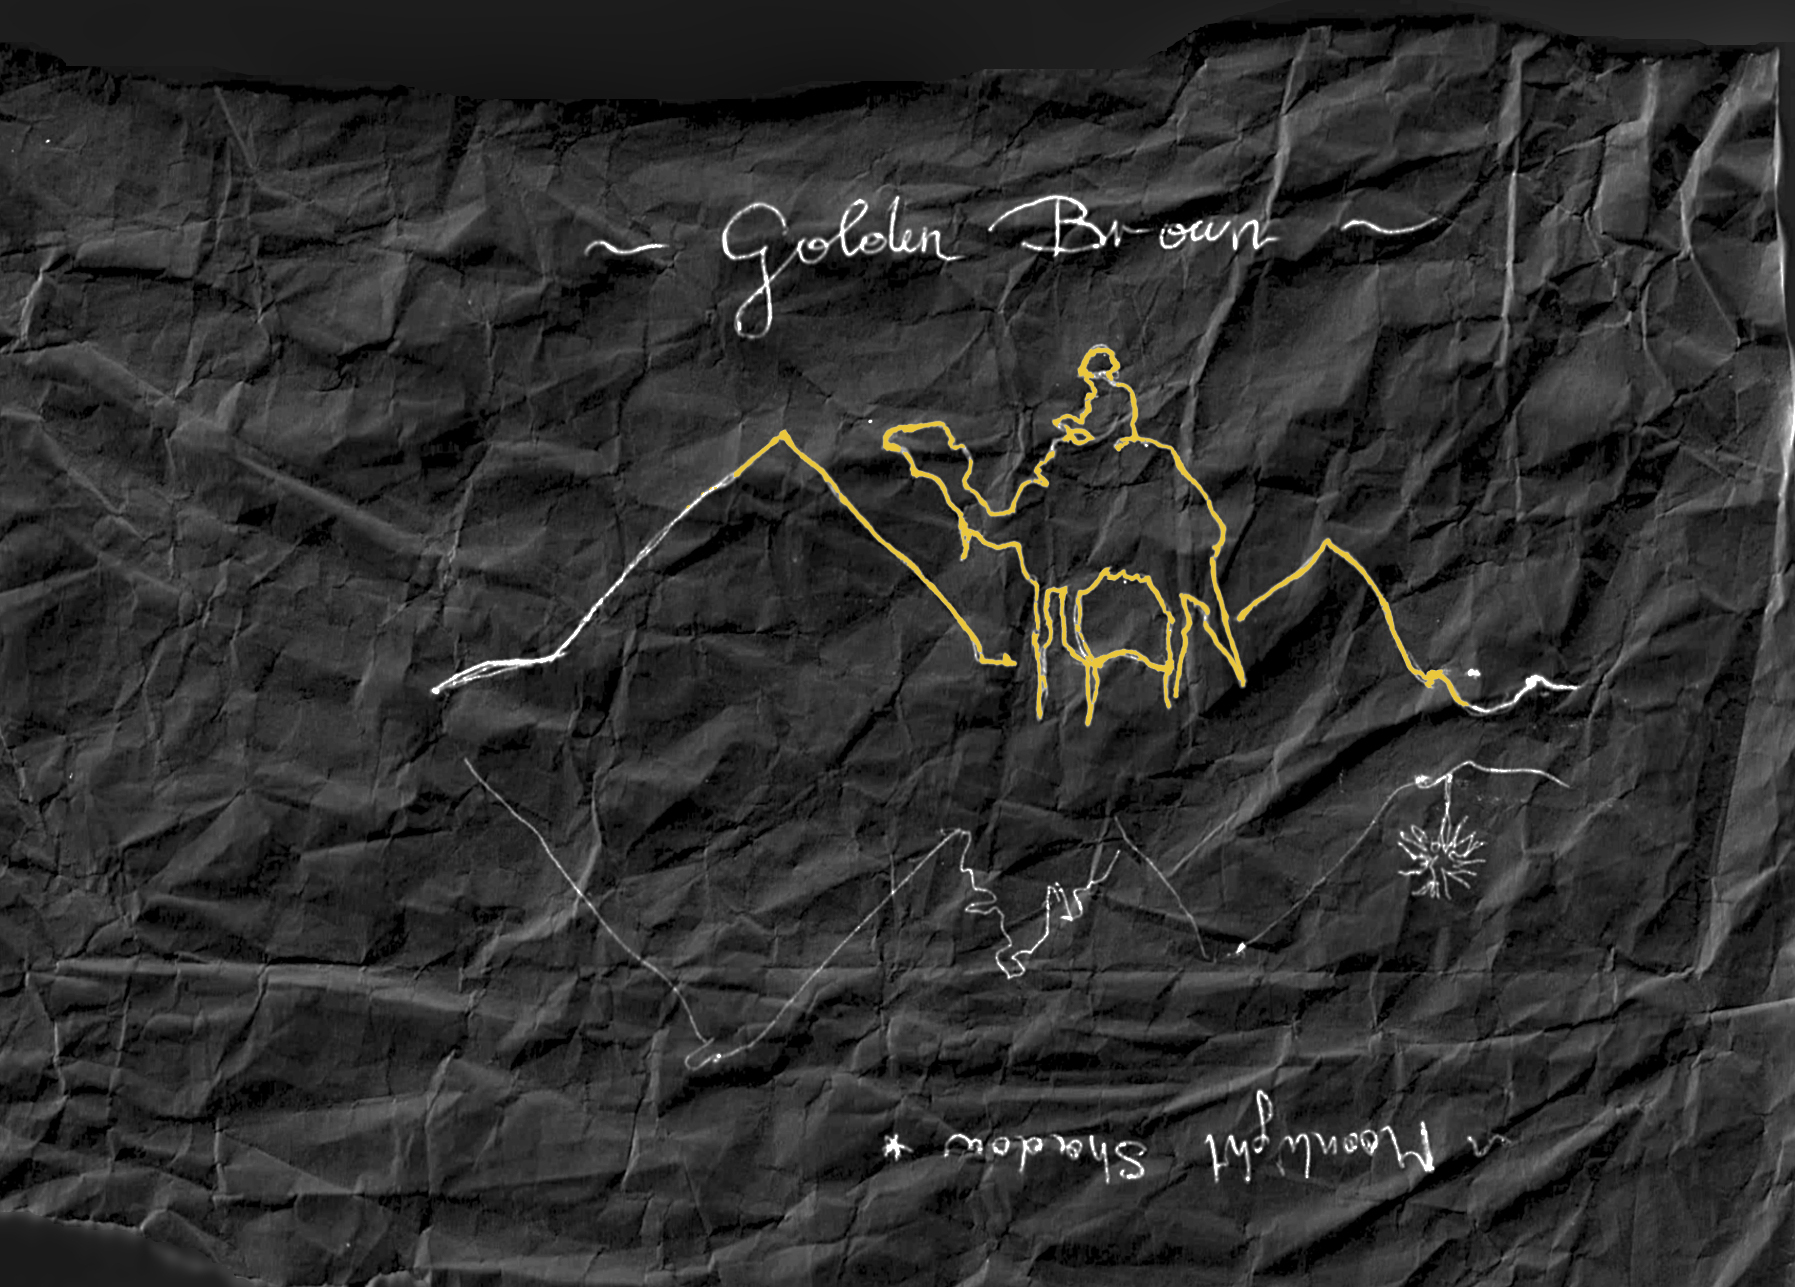 ~ Golden Brown ~
~ Moonlight Shadow *